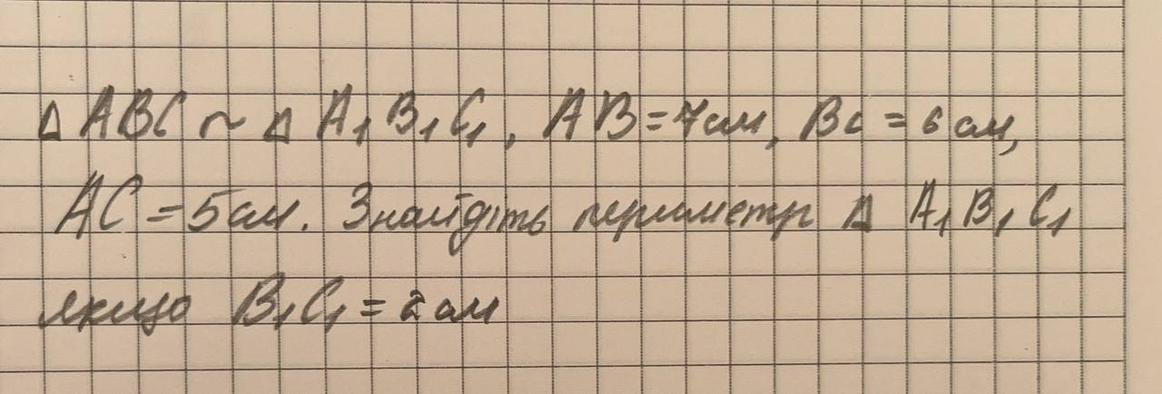 Δ ABC ~ Δ A₁B₁C₁, AB = 7 см, BC = 6 см,
AC = 5 см. Знайдіть периметр Δ A₁B₁C₁
якщо B₁C₁ = 2 см